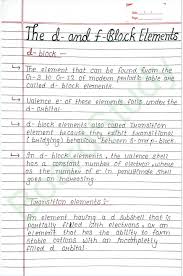 The d- and f-Block Elements
d-block -
The element that can be found from the
G-3 to G-12 of modern periodic table are
called d-block elements.
Valence e⁻ of these elements falls under the
d-orbital.
d-block elements also called transition
element because they exhibit transitional
(bridging) behaviour between s-and p-block.
In d-block elements, the valence shell
has a constant number of electron, where
as the number of e⁻ in penultimate shell
goes on increasing
Transition elements :-
An element having a d subshell that is
partially filled with electrons, or an
element that has the ability to form
stable cations with an incompletely
filled d orbital.